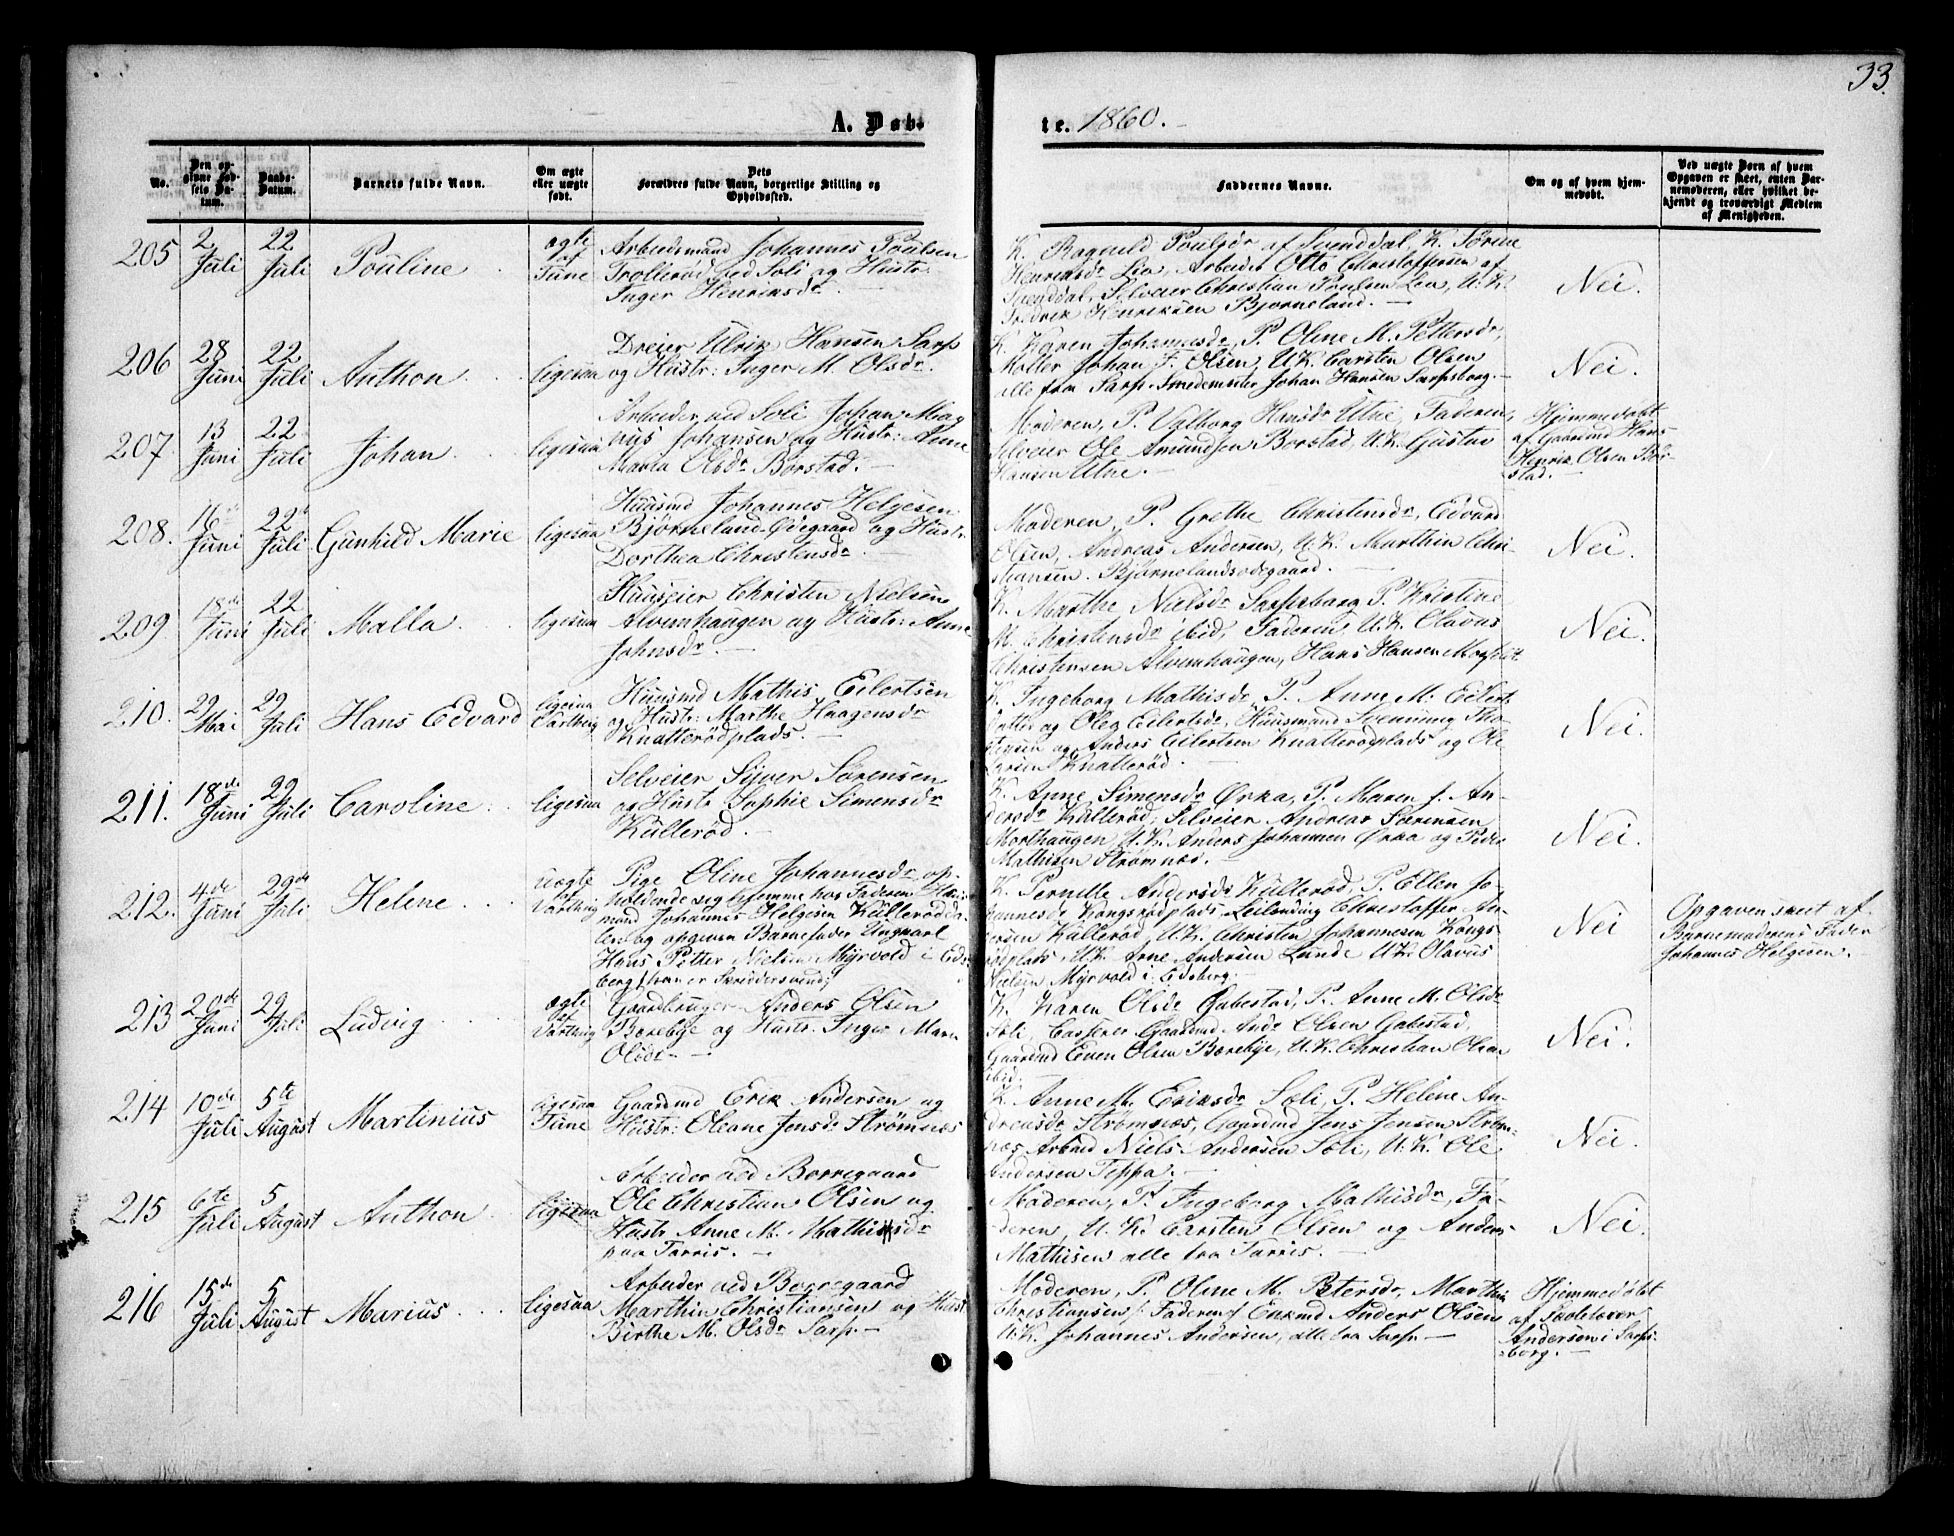 33.
A. Døbte. 1860.
No.
Den opgivne Fødsels Datum.
Daabs-Datum.
Barnets fulde Navn.
Om ægte eller uægte født.
Dets Forældres fulde Navn, borgerlige Stilling og Opholdssted.
Faddernes Navne.
Om og af hvem hjemmedøbt.
Ved uægte Barn af hvem Opgaven er skeet, enten Barnemoderen, eller hvilket bekjendt og troværdigt Medlem af Menigheden.
205 2 Juli 22 Juli Pouline ægte af Tune
Arbeidsmand Johannes Poulsen
Trollerud ved Soli og Hustr:
Inger Henriksdr.
K. Ragnild Poulsdr af Svenddal, K. Sørine
Henriksdr Lia, Arbeider Otto Christoffersen af
Svenddal, Selveier Christian Poulsen Lia, U.K.
Fredrik Henriksen Bjørneland.
Nei.
206 28 Juni 22 Juli Anthon ligesaa
Dreier Ulrik Hansen Sarp
og Hustr: Inger M. Olsdr.
K. Karen Johannesdr, P. Oline M. Pettersdr,
Malter Johan F. Olsen, U.K. Carsten Olsen
alle fra Sarp. Smedemester Johan Hansen Sarpsborg.
Nei.
207. 13 Juni 22 Juli Johan ligesaa
Arbeider ved Soli Johan Mag
nus Johansen og Hustr: Anne
Maria Olsdr Borstad.
Moderen, P. Valborg Hansdr Utne, Faderen,
Selveier Ole Amundsen Borstad, U.K. Gustav
Hansen Utne.
Hjemmedøbt
af Gaardmd Hans
Henrik Olsen Bor-
stad.
208. 16 Juni 22 Juli Gunhild Marie ligesaa
Huusmd Johannes Helgesen
Bjørneland Ødegaard og Hustr:
Dorthea Christensdr
Moderen, P. Grethe Christensdr, Edvard
Olsen, Andreas Andersen, U.K. Marthin Chri-
stiansen. Bjørnelandsødegaard.
Nei.
209 18de Juni 22 Juli Malla ligesaa
Huuseier Christen Nielsen
Alvimhaugen og Hustr: Anne
Johnsdr.
K. Marthe Nielsdr Sarpsborg P. Kristine
M. Christensdr ibid, Faderen, U.K. Olavus
Christensen Alvimhaugen, Hans Hansen
Nei.
210. 29 Mai 29 Juli Hans Edvard ligesaa Varteig
Huusmd Mathis Eilertsen
og Hustr: Marthe Haagensdr
Knatterødplads.
K. Ingeborg Mathisdr, P. Anne M. Eilerts
datter og Oleg Eilertsdr, Huusmand Svenning Tho-
stensen og Anders Eilertsen Knatterødplads og Ole
Larsen Knatterød.
Nei.
211. 18de Juni 29 Juli Caroline ligesaa
Selveier Siver Sørensen
og Hustr Sophie Simensdr
Küllerød.
K. Anne Simensdr Ørka, P. Maren J. An-
dersdr Küllerød, Selveier Andreas Sørensen
Morthaugen U.K. Anders Johannen Ørka og Peder
Mathisen Strømnæs.
Nei.
212. 4de Juni 29de Juli Helene Uægte af Varteig
Pige Oline Johannesdr op-
holdende sig hjemme hos Faderen Huus
mand Johannes Helgesen Küllerødda-
len og opgiven Barnefader Ungkarl
Hans Petter Nielsen Myrvold i Eids
berg, han er Skræddersvend;
K. Pernille Andersdr Küllerød, P. Ellen Jo-
hannesdr Kongsrødplads, Leilending Christoffer An-
dersen Küllerød, U.K. Christen Johannesen Kongs
rødplads, U.K. Arne Andersen Lunde U.K. Olavus
Nielsen Myrvold i Eidsberg.
Nei
Opgaven skeet af
Barnemoderens Fader
Johannes Helgesen.
213 20de Juni 29 Juli Ludvig ægte af Varteig
Gaardbruger Anders Olsen
Bærebye og Hustr. Inger Marie
Olsdr
K. Karen Olsdr Gabestad, P. Anne M. Olsdr
Soli, Gaardmd Andr Olsen Gabestad,
Gaardmd Even Olsen Bærebye, U.K. Christian Olsen
ibid.
Nei.
214 10de Juli 5te August Martinius ligesaa Tune
Gaardmd Erik Andersen og
Hustr: Oleane Jensdr Strømnæs
K. Anne M. Eriksdr Soli, P. Helene An-
dreasdr Strømnæs, Gaardmd Jens Jensen Strøm-
næs Arbmd Niels Andersen Soli, U.K. Ole
Andersen Teppa.
Nei.
215 6te Juli 5 August Anthon ligesaa
Arbeider ved Borregaard
Ole Christian Olsen og
Hustr Anne M. Mathisdr
paa Tarris.
Moderen, P. Ingeborg Mathisdr, Fa-
deren, U.K. Carsten Olsen og Anders
Mathisen alle fra Tarris.
Nei.
216 15de Juli 5 August Marius ligesaa
Arbeider ved Borregaard
Marthin Christiansen og Hust
Birthe M. Olsdr Sarp.
Moderen, P. Oline M. Petersdr, Marthin
Christiansen / Faderen / Enkmd Anders Olsen
U.K. Johannes Andersen, alle fra Sarp.
Hjemmedøbt
af Skolelærer
Andersen i Sarps-
borg.